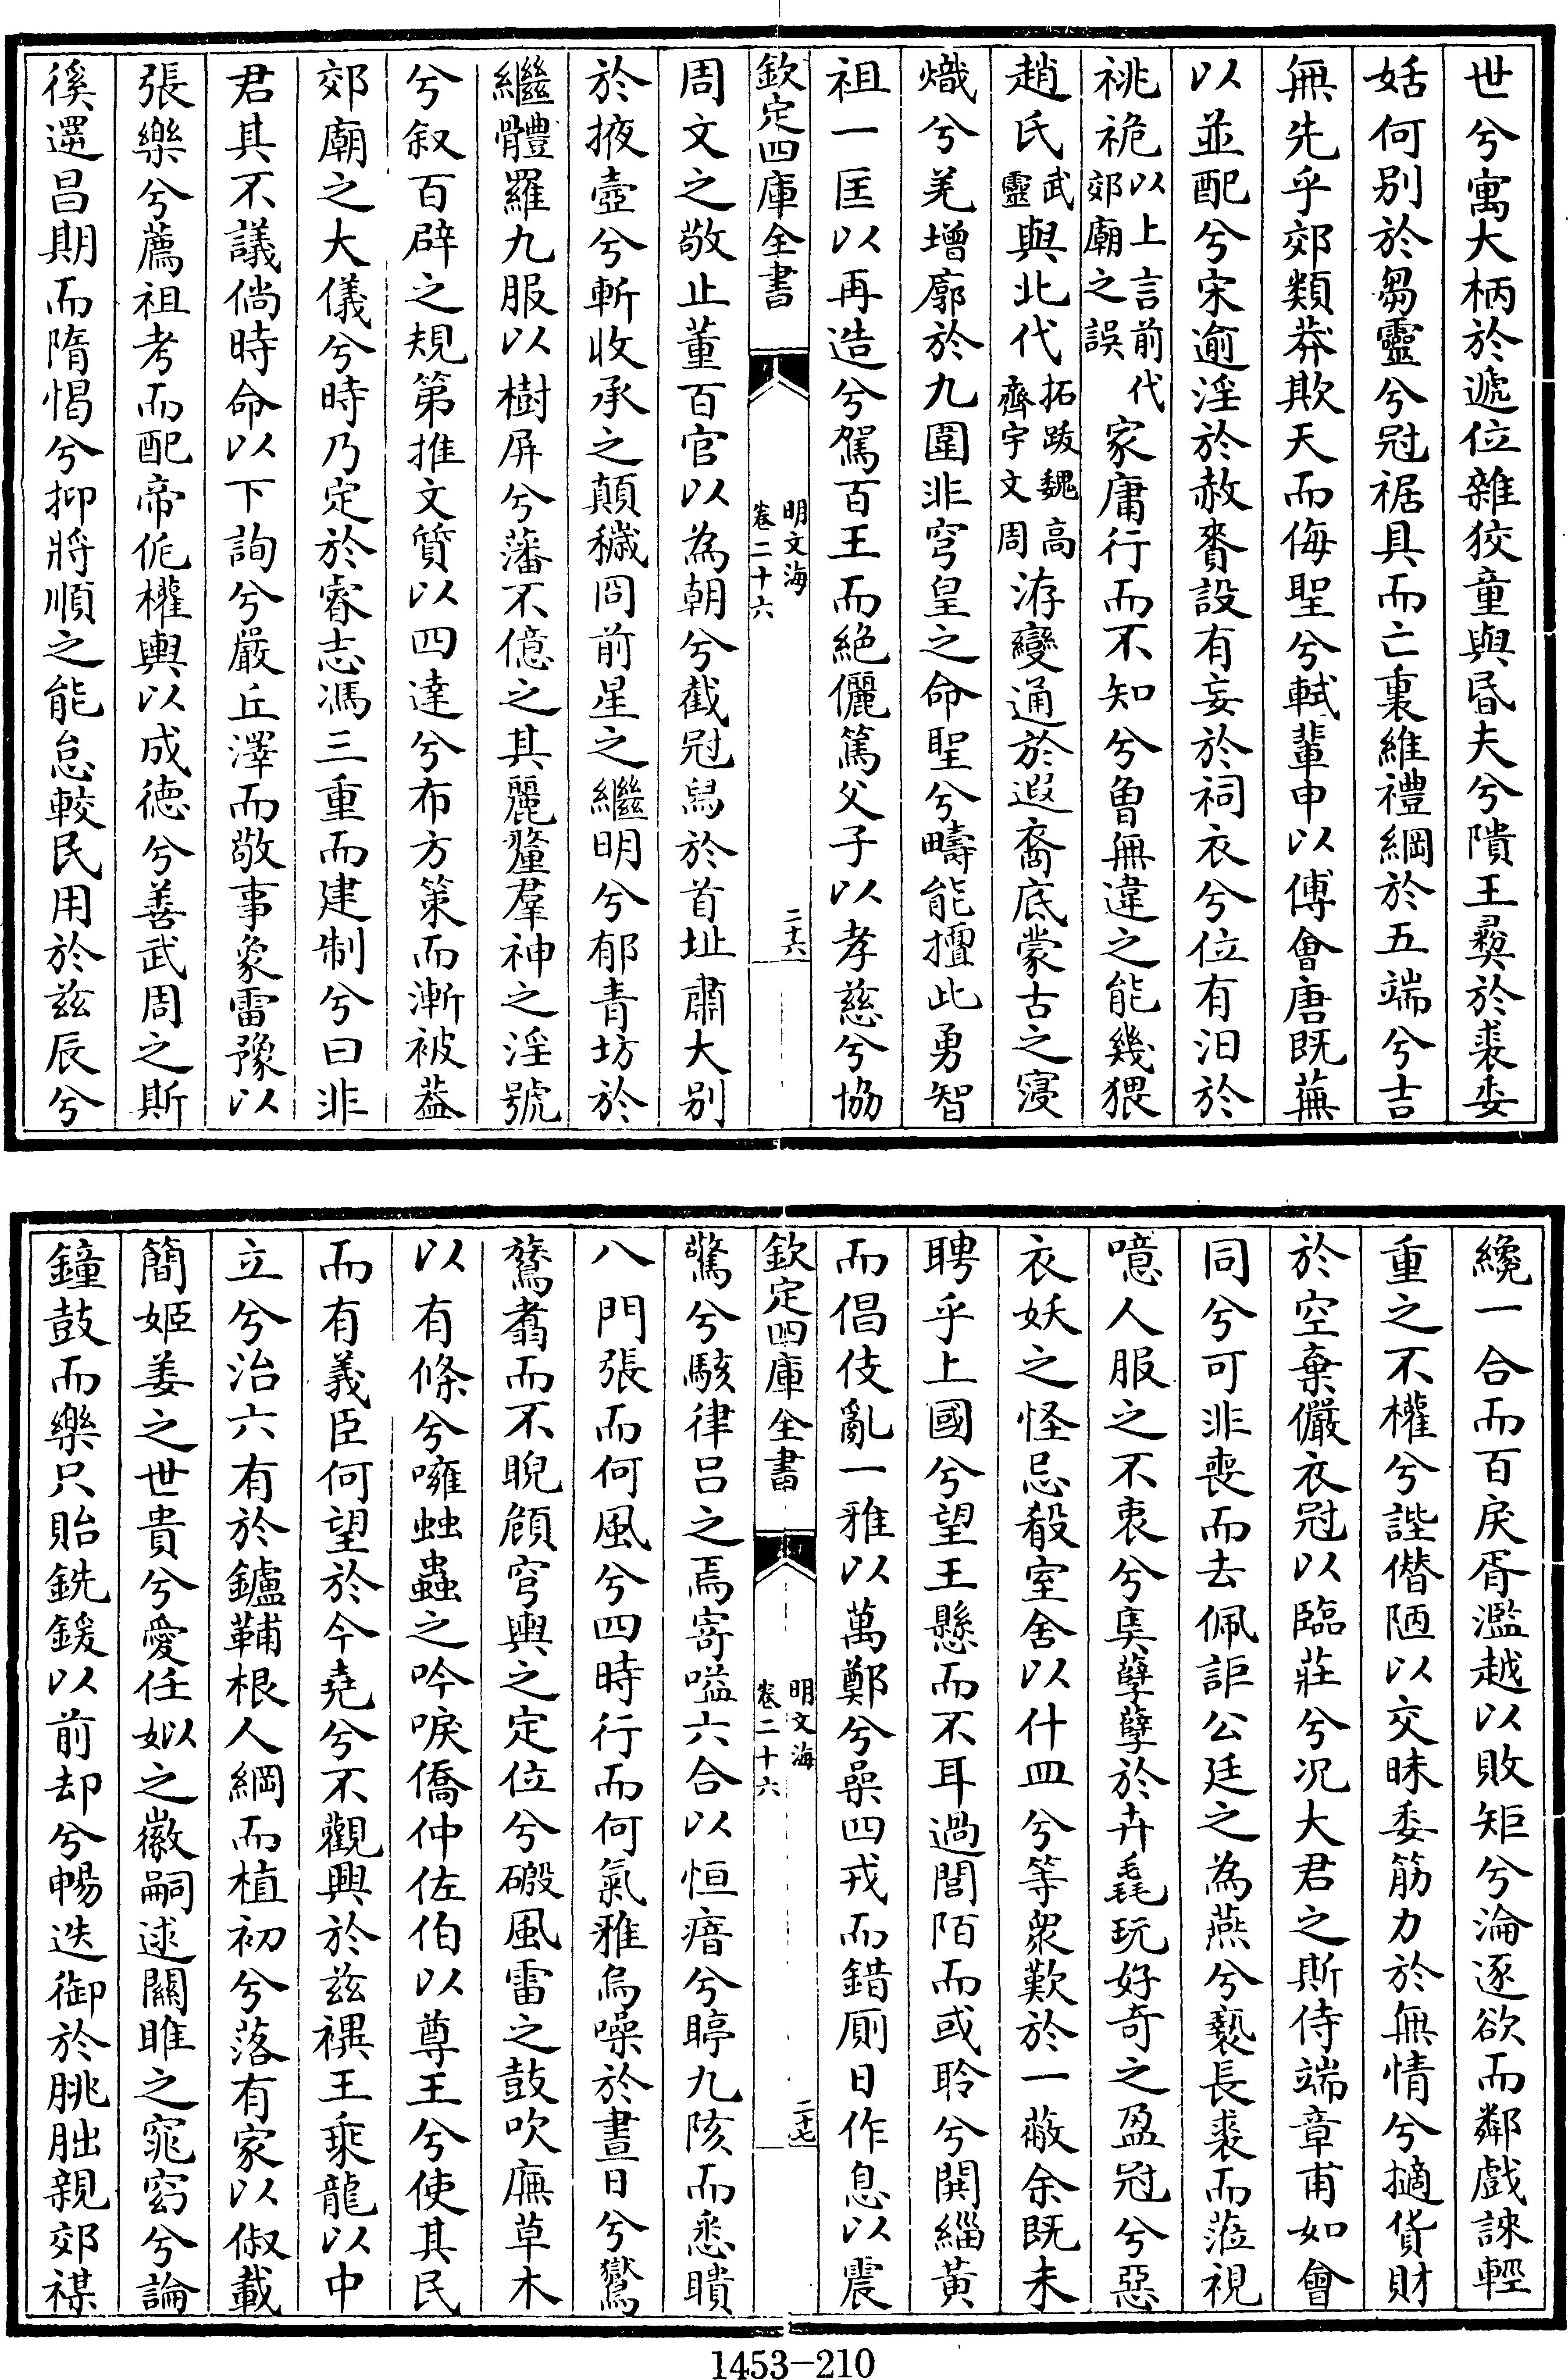 世兮寓大柄於遞位雜狡童與昏夫兮隤王彛於裘委
姡何别於芻靈兮冠裾具而亡裏維禮綱於五端兮吉
無先乎郊類莽欺天而侮聖兮軾輩申以傅會唐既蕪
以並配兮宋逾淫於赦賚設有妄於祠衣兮位有汨於
祧祪以上言前代郊廟之誤家庸行而不知兮魯無違之能幾猥
趙氏武靈與北代拓跋魏高齊宇文周洊變通於遐裔底蒙古之寖
熾兮羌增廓於九圍非穹皇之命聖兮疇能擅此勇智
祖一匡以再造兮駕百王而絶儷篤父子以孝慈兮協
欽定四庫全書
明文海
卷二十六
二十六
周文之敬止董百官以為朝兮截冠舄於首址肅大别
於掖壼兮斬收承之顛穢冏前星之繼明兮郁青坊於
繼體羅九服以樹屏兮藩不億之其麗釐羣神之淫號
兮叙百辟之規第推文質以四達兮布方策而漸被葢
郊廟之大儀兮時乃定於睿志馮三重而建制兮曰非
君其不議倘時命以下詢兮嚴丘澤而敬事象雷豫以
張樂兮薦祖考而配帝伌權輿以成德兮善武周之斯
徯還昌期而隋愒兮抑將順之能怠較民用於兹辰兮
纔一合而百戾胥濫越以敗矩兮淪逐欲而鄰戲諫輕
重之不權兮諡僭陋以交昧委筋力於無情兮擿貨財
於空棄儼衣冠以臨莊兮况大君之斯侍端章甫如會
同兮可非喪而去佩詎公廷之為燕兮褻長裘而蒞視
噫人服之不衷兮奠孽孽於卉毳玩好奇之盈冠兮惡
衣妖之怪忌殽室舍以什皿兮等衆歎於一蔽余既未
聘乎上國兮望王懸而不耳過閭陌而或聆兮閧緇黃
而倡伎亂一雅以萬鄭兮喿四戎而錯厠日作息以震
欽定四庫全書
明文海
卷二十六
二十七
驚兮駭律吕之焉寄嗌六合以恒瘖兮聤九陔而悉聵
八門張而何風兮四時行而何氣雅烏噪於晝日兮鸑
鷟翥而不睨顧穹輿之定位兮礮風雷之鼓吹廡草木
以有條兮嗈䖵蟲之吟唳僑仲佐伯以尊王兮使其民
而有義臣何望於今堯兮不觀興於兹禩王乘龍以中
立兮治六有於鑪鞴根人綱而植初兮落有家以俶載
簡姬姜之世貴兮愛任姒之徽嗣逑關雎之窕窈兮論
鐘鼓而樂只貽銑鍰以前却兮暢迭御於朓朏親郊禖
1453—210